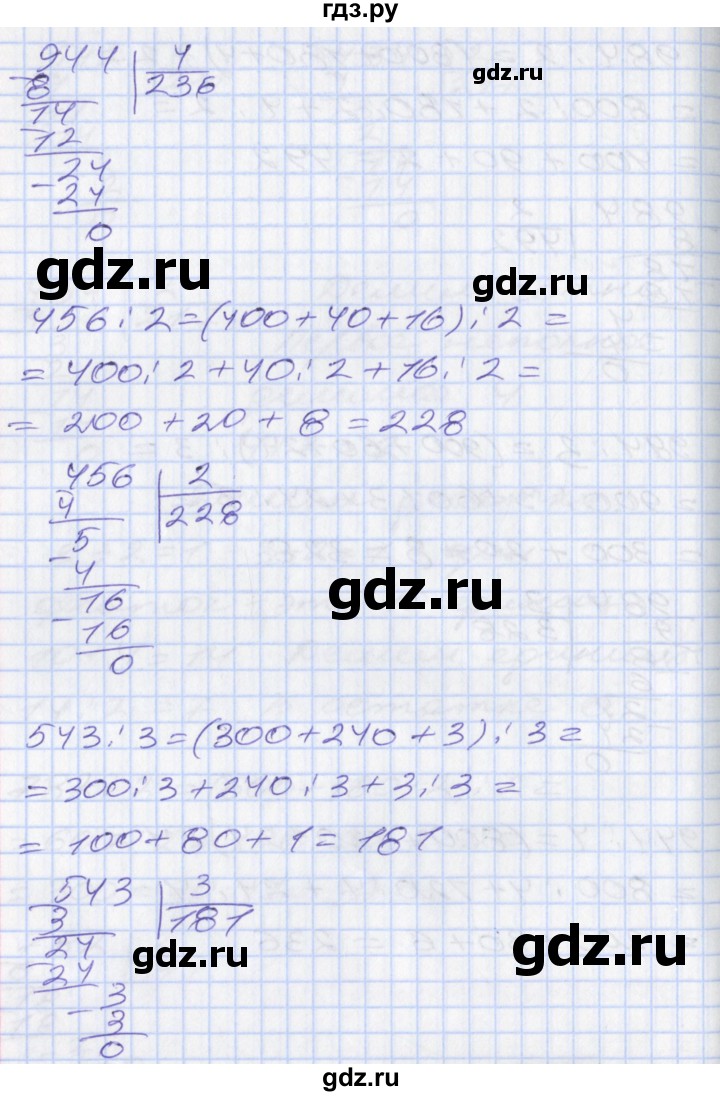 гдз.ру
944 | 4
gdz.ru
8 | 236
14
12
24
24
0
gdz.ru
gdz.ru
456 : 2 = (400 + 40 + 16) : 2 =
= 400 : 2 + 40 : 2 + 16 : 2 =
= 200 + 20 + 8 = 228
456 | 2
4 | 228
5
4
16
gdz.ru
16
0
543 : 3 = (300 + 240 + 3) : 3 =
= 300 : 3 + 240 : 3 + 3 : 3 =
= 100 + 80 + 1 = 181
543 | 3
3 | 181
24
gdz.ru
gdz.ru
24
3
3
0
gdz.ru